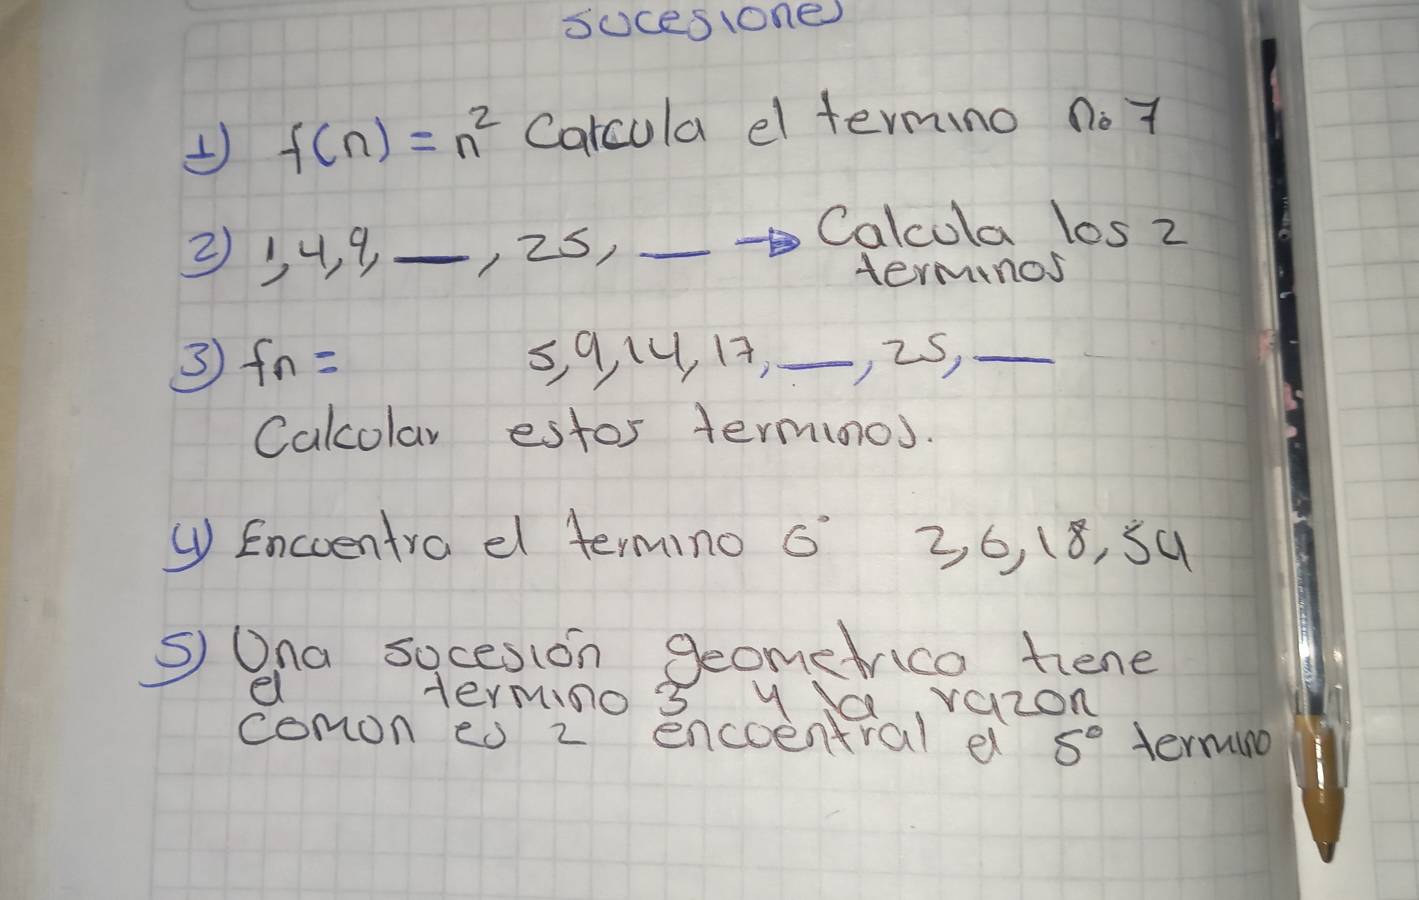 sucesiones
1) f(n) = n² Calcula el termino no 7
2) 1, 4, 9, __, 25, __ → Calcula los 2
terminos
3) fn = 5, 9, 14, 17, __, 25, __
Calcular estos terminos.
4) Encuentra el termino 6° 2, 6, 18, 54
5) Una sucesión geometrica tiene
el termino 3 y la razon
comun es 2 encuentral el 5° termino